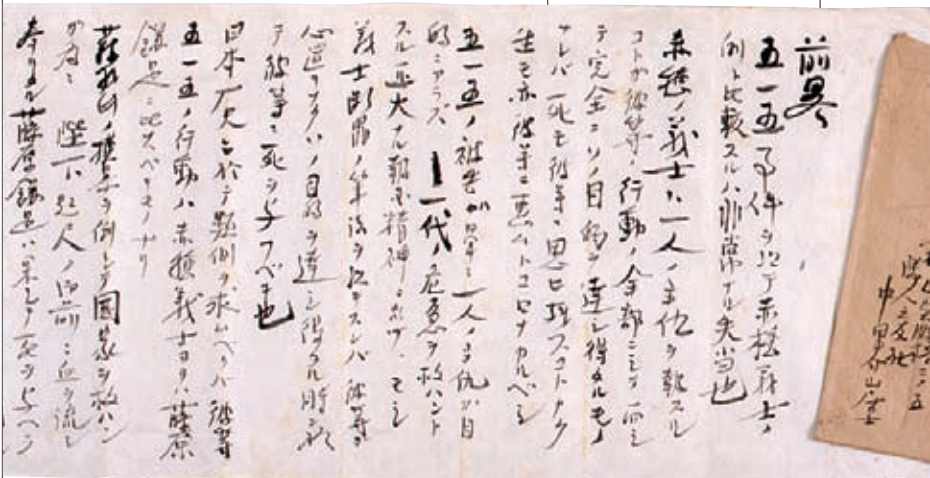 前畧
五一五事件ヲ以テ赤穂義士ノ
例ト比較スルハ非常ナル失当也
赤穂ノ義士ハ一人ノ主仇ヲ報スル
コトガ彼等ノ行動ノ全部ニシテ而シ
テ完全ニソノ目的ヲ達シ得タルモノ
ナレバ死モ彼等ニ思ヒ残スコトナク
生モ亦彼等ニ惠ムトコロナカルベシ
五一五ノ被告ガ単ニ一人ノ主仇ガ目
的ニアラズ 一代ノ危急ヲ救ハント
スル大ナル報国精神ニ出ヅ、モシ
義士断罪ノ筆法ヲ以テスレバ彼等ガ
心置キナクソノ目的ヲ達シ得タル時ニ於
テ彼等ニ死ヲ与フベキ也
日本歴史ニ於テ類例ヲ求ムベクバ彼等
五一五ノ行動ハ赤穂義士ヨリハ藤原
鎌足ニ比スベキモノナリ
蘇我氏ノ横暴ヲ倒シテ國家ヲ救ハン
ガ為ニ 陛下 人ノ面前ニ血ヲ流シ
奉リタル藤原鎌足ハ果シテ死ヲ与ヘラ
隣人之友社
中里介山居士